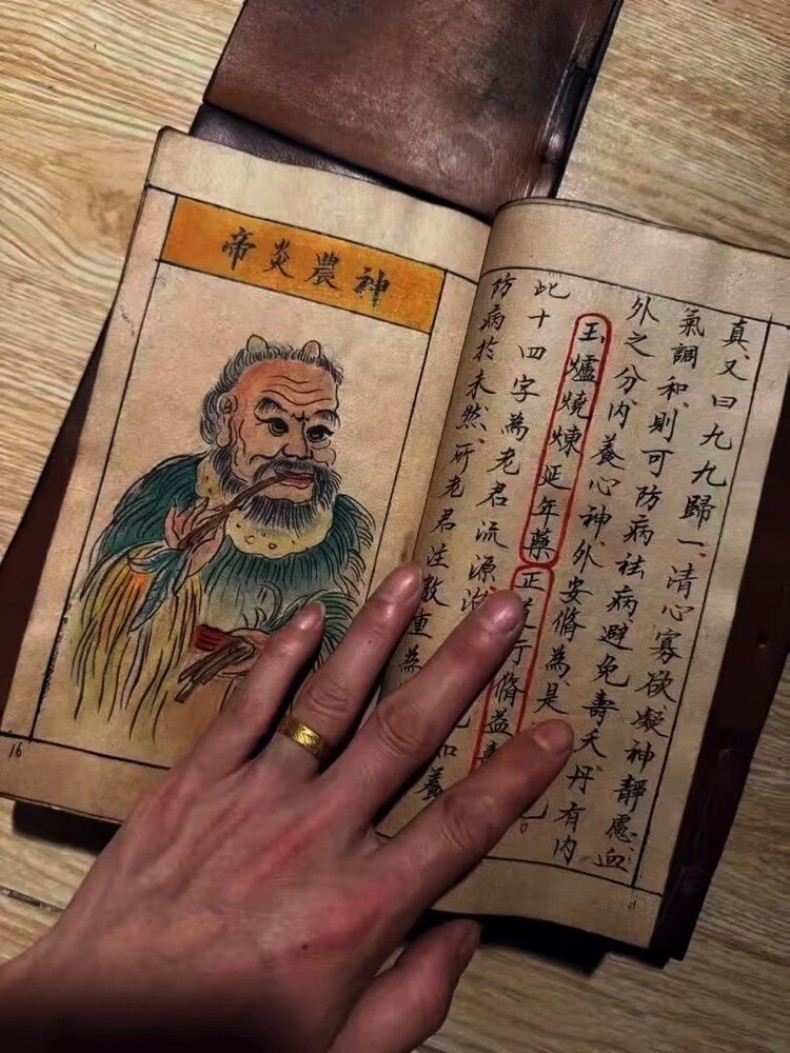 神農炎帝
16
真、又曰九九歸一、清心寡欲凝神靜慮、血
氣調和、則可防病祛病避免壽夭丹有内
外之分、内養心神外安脩為是
玉爐燒煉延年藥正行脩益
此十四字為老君流源治
防病於未然、所老君注教重為